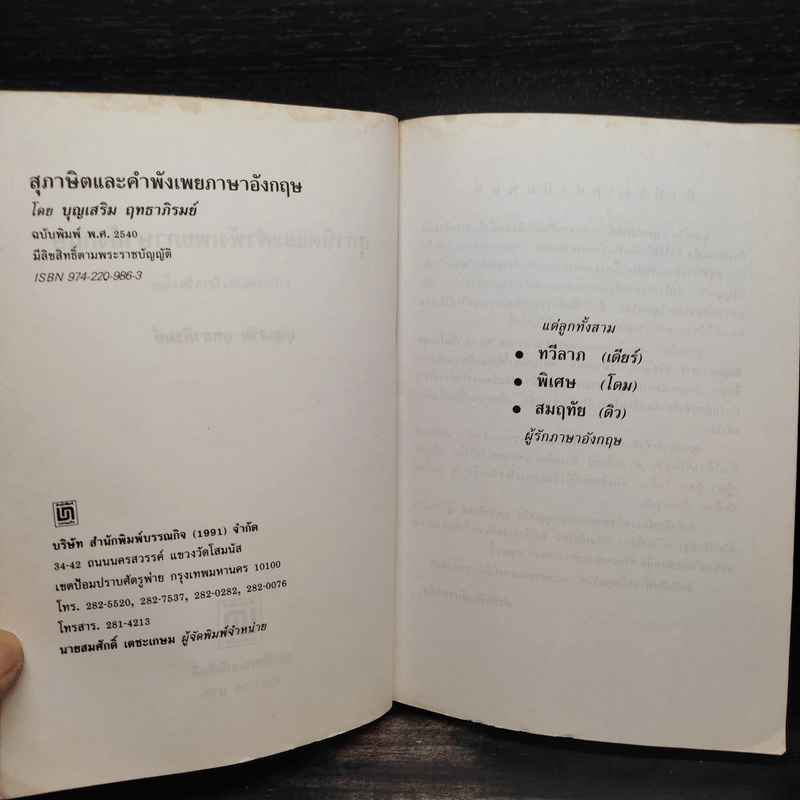 สุภาษิตและคำพังเพยภาษาอังกฤษ
โดย บุญเสริม ฤทธาภิรมย์
ฉบับพิมพ์ พ.ศ. 2540
มีลิขสิทธิ์ตามพระราชบัญญัติ
ISBN 974-220-986-3
บริษัท สำนักพิมพ์บรรณกิจ (1991) จำกัด
34-42 ถนนนครสวรรค์ แขวงวัดโสมนัส
เขตป้อมปราบศัตรูพ่าย กรุงเทพมหานคร 10100
โทร. 282-5520, 282-7537, 282-0282, 282-0076
โทรสาร. 281-4213
นายสมศักดิ์ เตชะเกษม ผู้จัดพิมพ์จำหน่าย
แด่ลูกทั้งสาม
● ทวีลาภ (เดียร์)
● พิเศษ (โดม)
● สมฤทัย (ดิว)
ผู้รักภาษาอังกฤษ